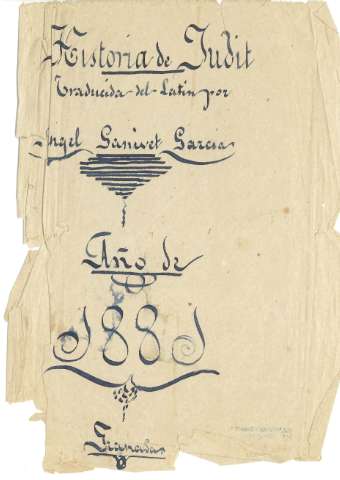 Historia de Judit
Traducida del Latín por
Angel Ganivet García
Año de
1881
Granada